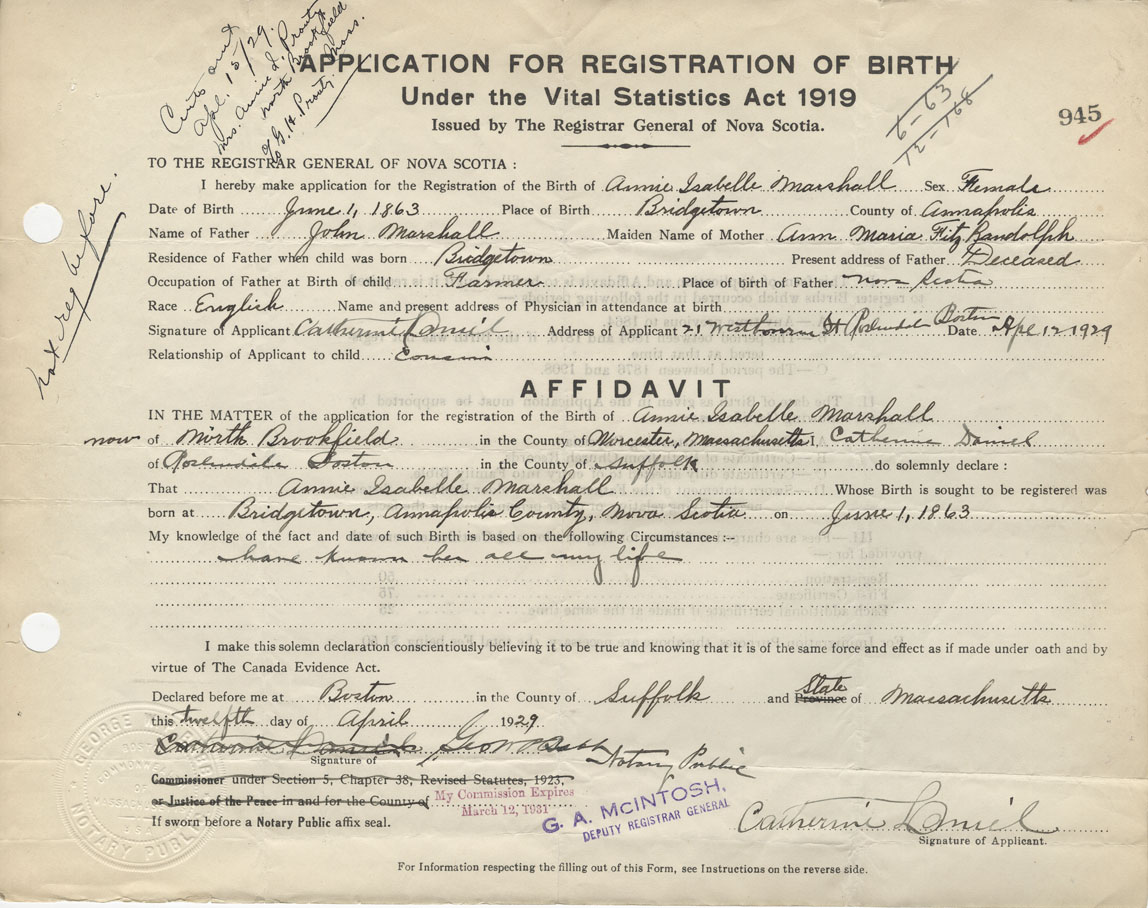 Certs sent
Apl. 15/29.
Mrs. Annie I. Prouty
North Brookfield
Mass.
G. H. Prouty.
APPLICATION FOR REGISTRATION OF BIRTH
Under the Vital Statistics Act 1919
Issued by The Registrar General of Nova Scotia.
6-63
12-168
945
not reg before.
TO THE REGISTRAR GENERAL OF NOVA SCOTIA :
I hereby make application for the Registration of the Birth of Annie Isabelle Marshall Sex Female
Date of Birth June 1, 1863 Place of Birth Bridgetown County of Annapolis
Name of Father John Marshall Maiden Name of Mother Ann Maria Fitz Randolph
Residence of Father when child was born Bridgetown Present address of Father Deceased
Occupation of Father at Birth of child Farmer Place of birth of Father Nova Scotia
Race English Name and present address of Physician in attendance at birth
Signature of Applicant Catherine Daniel Address of Applicant 21 Westbourne St Roslindale Boston Date Apl 12 1929
Relationship of Applicant to child Cousin
AFFIDAVIT
IN THE MATTER of the application for the registration of the Birth of Annie Isabelle Marshall
now of North Brookfield in the County of Worcester, Massachusetts I, Catherine Daniel
of Roslindale Boston in the County of Suffolk do solemnly declare :
That Annie Isabelle Marshall Whose Birth is sought to be registered was
born at Bridgetown, Annapolis County, Nova Scotia on June 1, 1863
My knowledge of the fact and date of such Birth is based on the following Circumstances :--
have known her all my life
I make this solemn declaration conscientiously believing it to be true and knowing that it is of the same force and effect as if made under oath and by
virtue of The Canada Evidence Act.
Declared before me at Boston in the County of Suffolk and Province State of Massachusetts
this twelfth day of April 1929
Catherine Daniel Geo W Babb Notary Public
Signature of
Commissioner under Section 5, Chapter 38, Revised Statutes, 1923,
or Justice of the Peace in and for the County of
My Commission Expires
March 12, 1931
If sworn before a Notary Public affix seal.
G. A. McINTOSH,
DEPUTY REGISTRAR GENERAL
Catherine Daniel
Signature of Applicant.
For Information respecting the filling out of this Form, see Instructions on the reverse side.
GEORGE
NOTARY PUBLIC